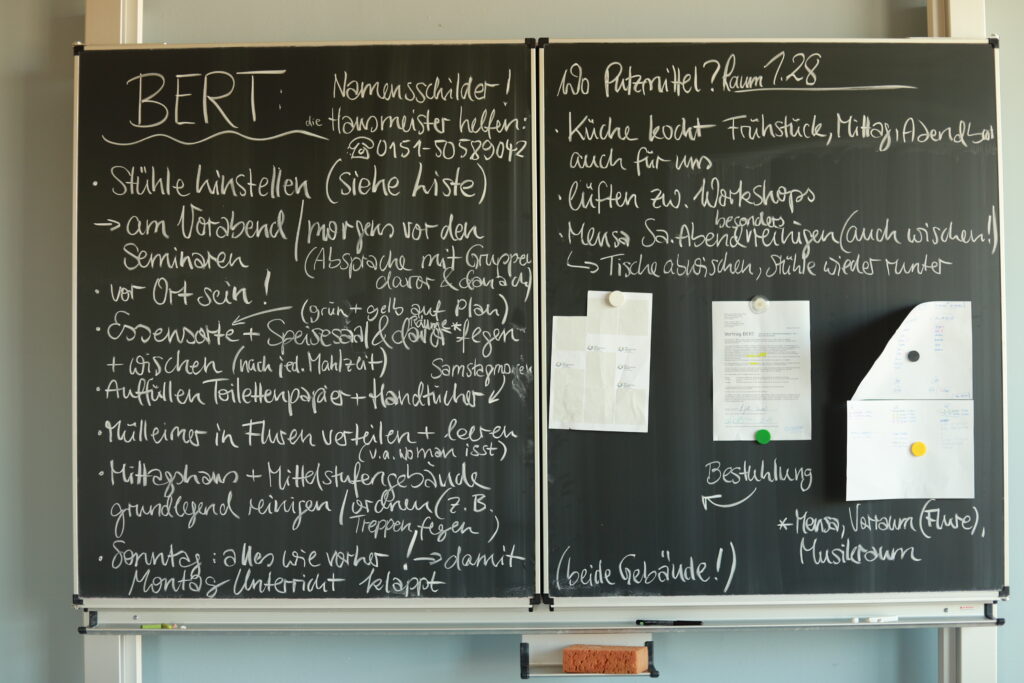 BERT:
Namensschilder!
die Hausmeister helfen:
☎0151-50589042
• Stühle hinstellen (siehe Liste)
→ am Vorabend / morgens vor den
Seminaren (Absprache mit Gruppen
davor & danach)
• vor Ort sein!
(grün + gelb auf Plan)
• Essensorte + Speisesaal & davor* fegen
+ wischen (nach jed. Mahlzeit)
• Auffüllen Toilettenpapier + Handtücher
• Mülleimer in Fluren verteilen + leeren
(v.a. woman isst)
• Mittagshaus + Mittelstufengebäude
grundlegend reinigen / ordnen (z.B.
Treppen fegen)
• Sonntag: alles wie vorher! → damit
Montag Unterricht klappt
Wo Putzmittel? Raum 1.28
• Küche kocht Frühstück, Mittag, Abendbrot
auch für uns
• lüften zw. Workshops
besonders
• Mensa Sa. Abend reinigen (auch wischen!)
↳ Tische abwischen, Stühle wieder runter
Vertrag BERT
Bestuhlung
*Mensa, Vorraum (Flure),
Musikraum
(beide Gebäude!)